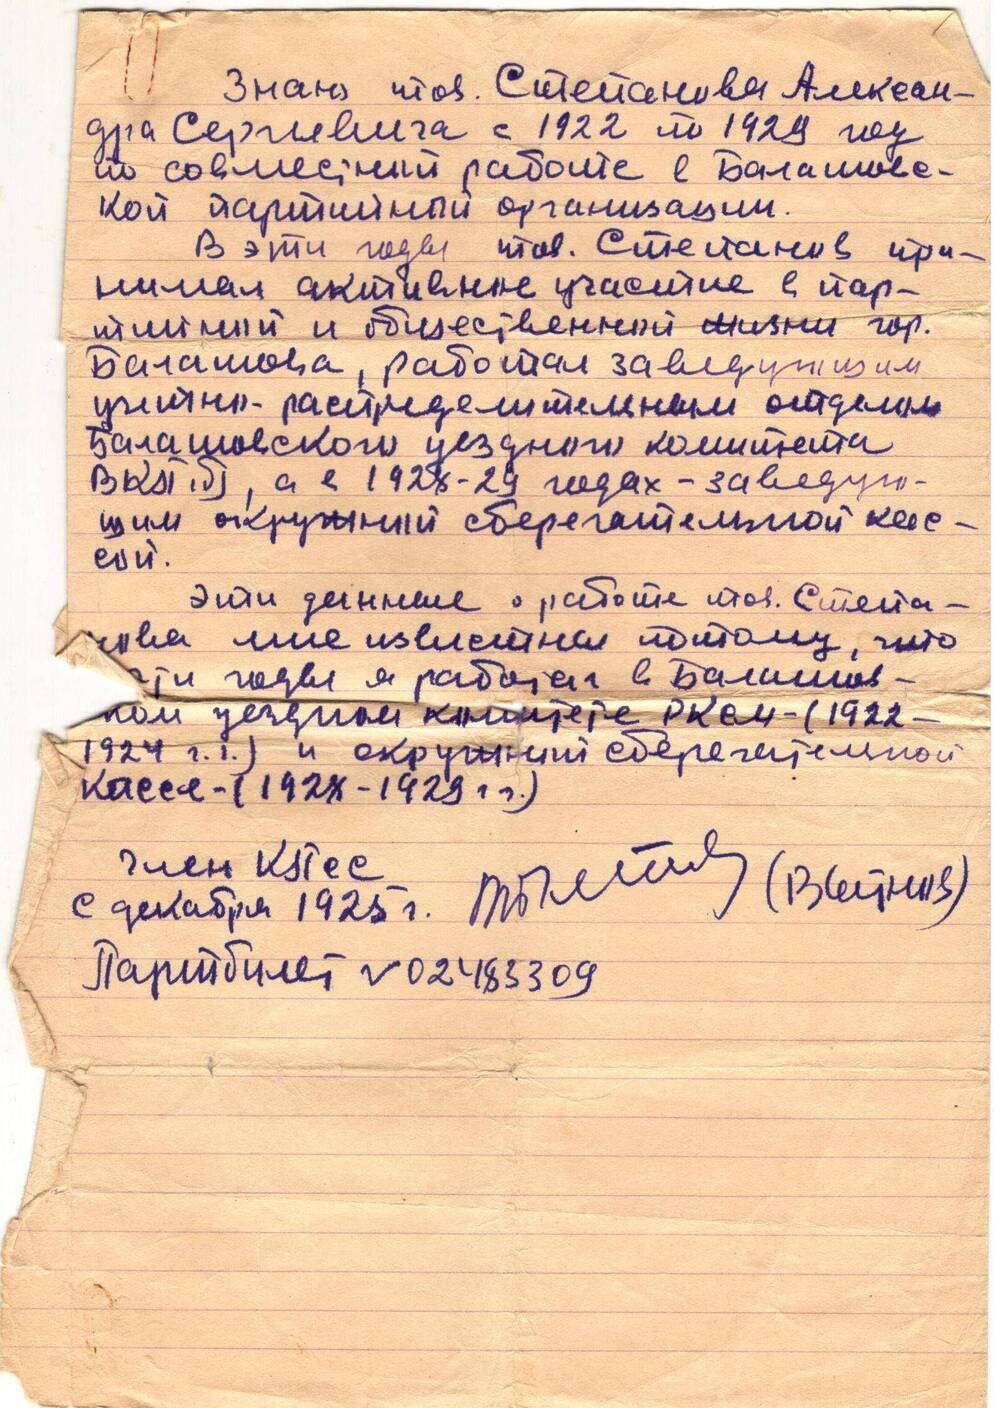 Знаю тов. Степанова Алексан-
дра Сергеевича с 1922 по 1929 год
по совместной работе в Балашовс-
кой партийной организации.
В эти годы тов. Степанов при-
нимал активное участие в пар-
тийной и общественной жизни гор.
Балашова, работал заведующим
учетно-распределительным отделом
Балашовского уездного комитета
ВКП(б), а в 1928-29 годах - заведую-
щим окружной сберегательной кас-
сой.
Эти данные о работе тов. Степа-
нова мне известны потому, что
эти годы я работал в Балашов-
ком уездном комитете РКСМ-(1922-
1924 г.г.) и окружной сберегательной
кассе-(1928-1929 г.г.)
член КПСС
с декабря 1925 г.
Партбилет № 02483309